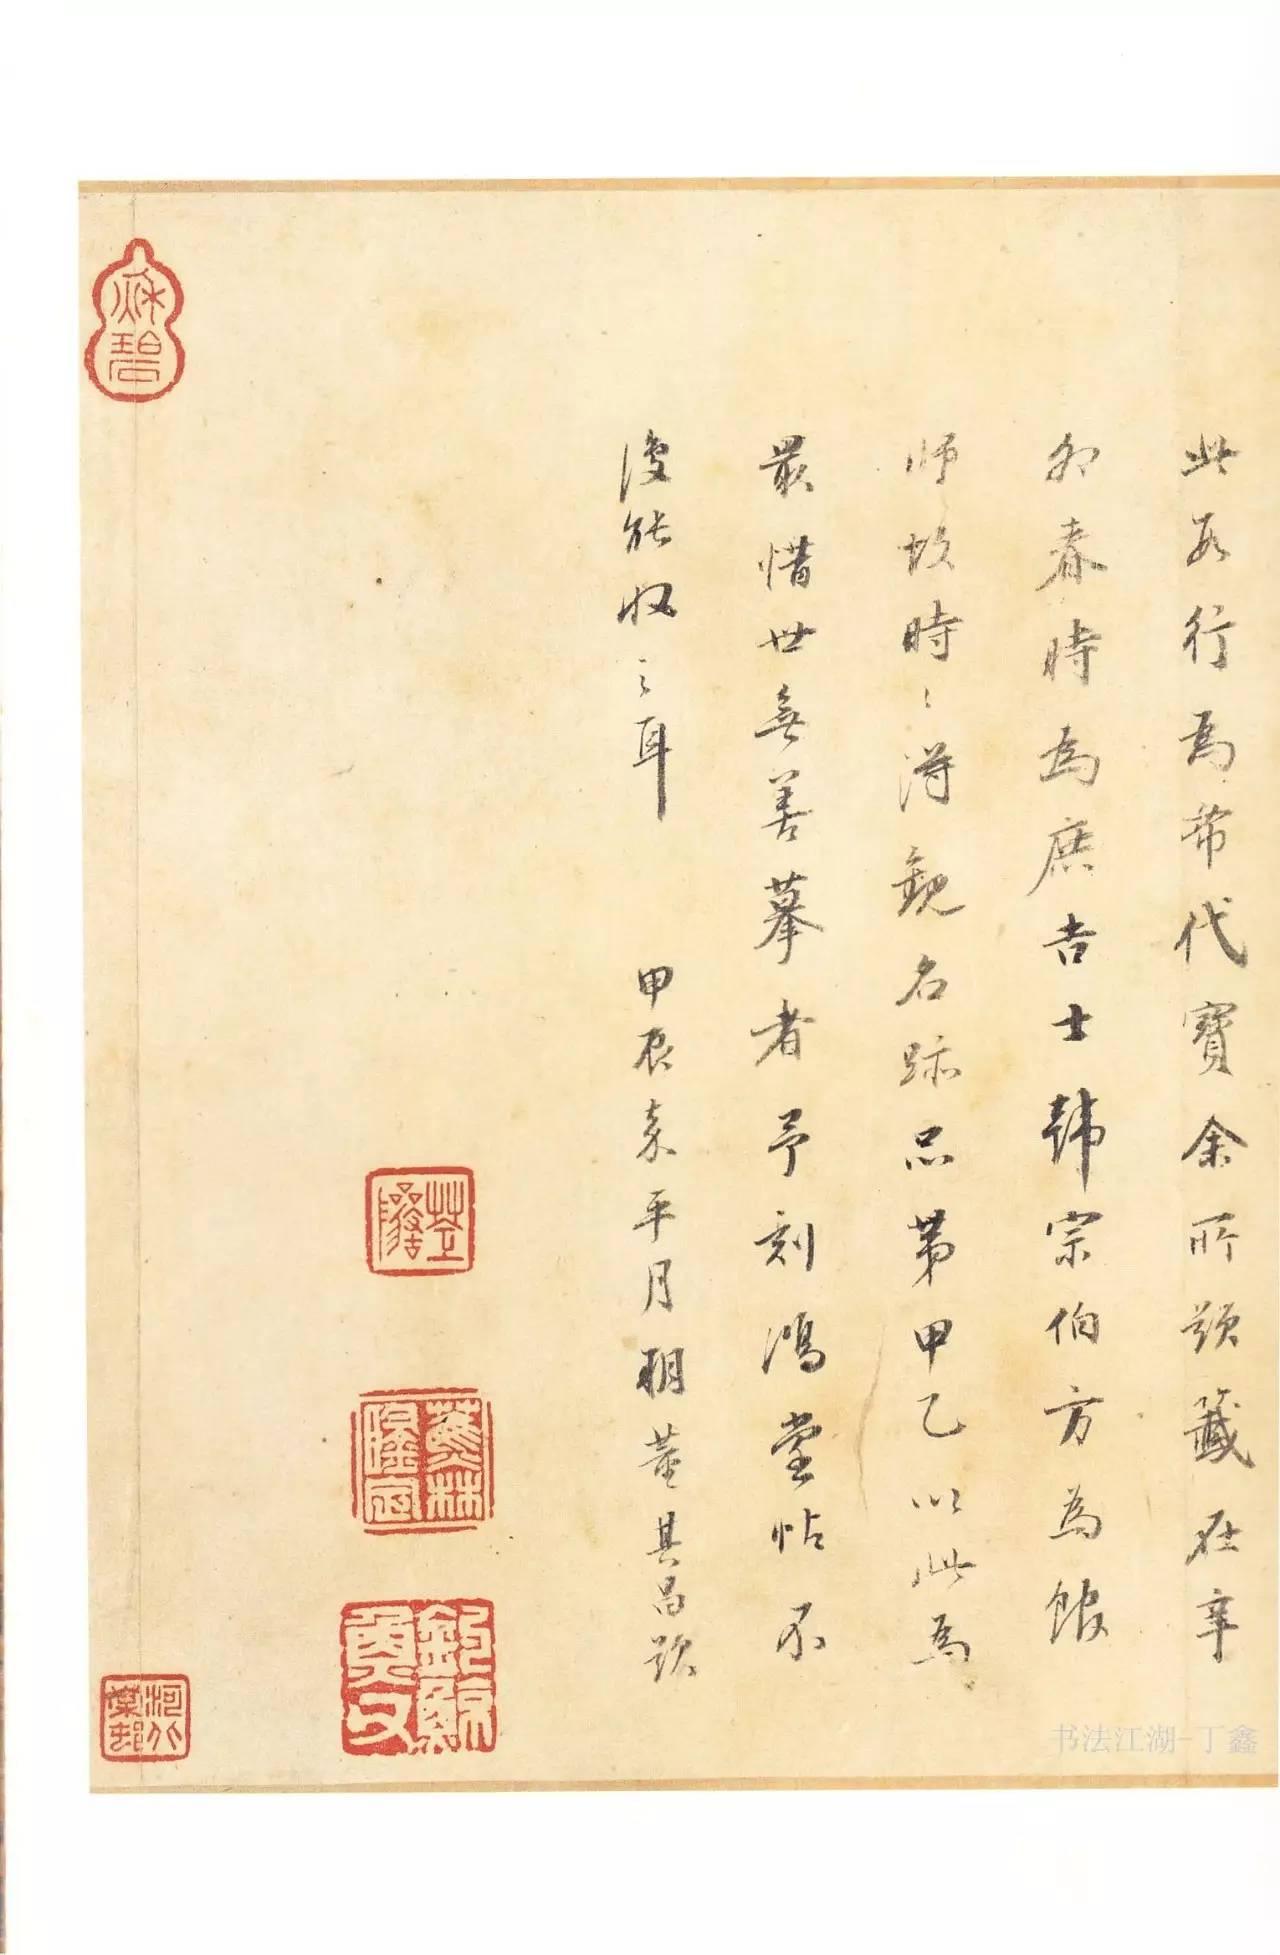 此數行為希代寶余所題籤在辛
卯春時為庶吉士韓宗伯方為館
師故時〻得觀名跡品第甲乙以此為
最惜世無善摹者予刻鴻堂帖不
復能收之耳
甲辰嘉平月朔董其昌題
蕉林
鉤鯨
书法江湖-丁鑫